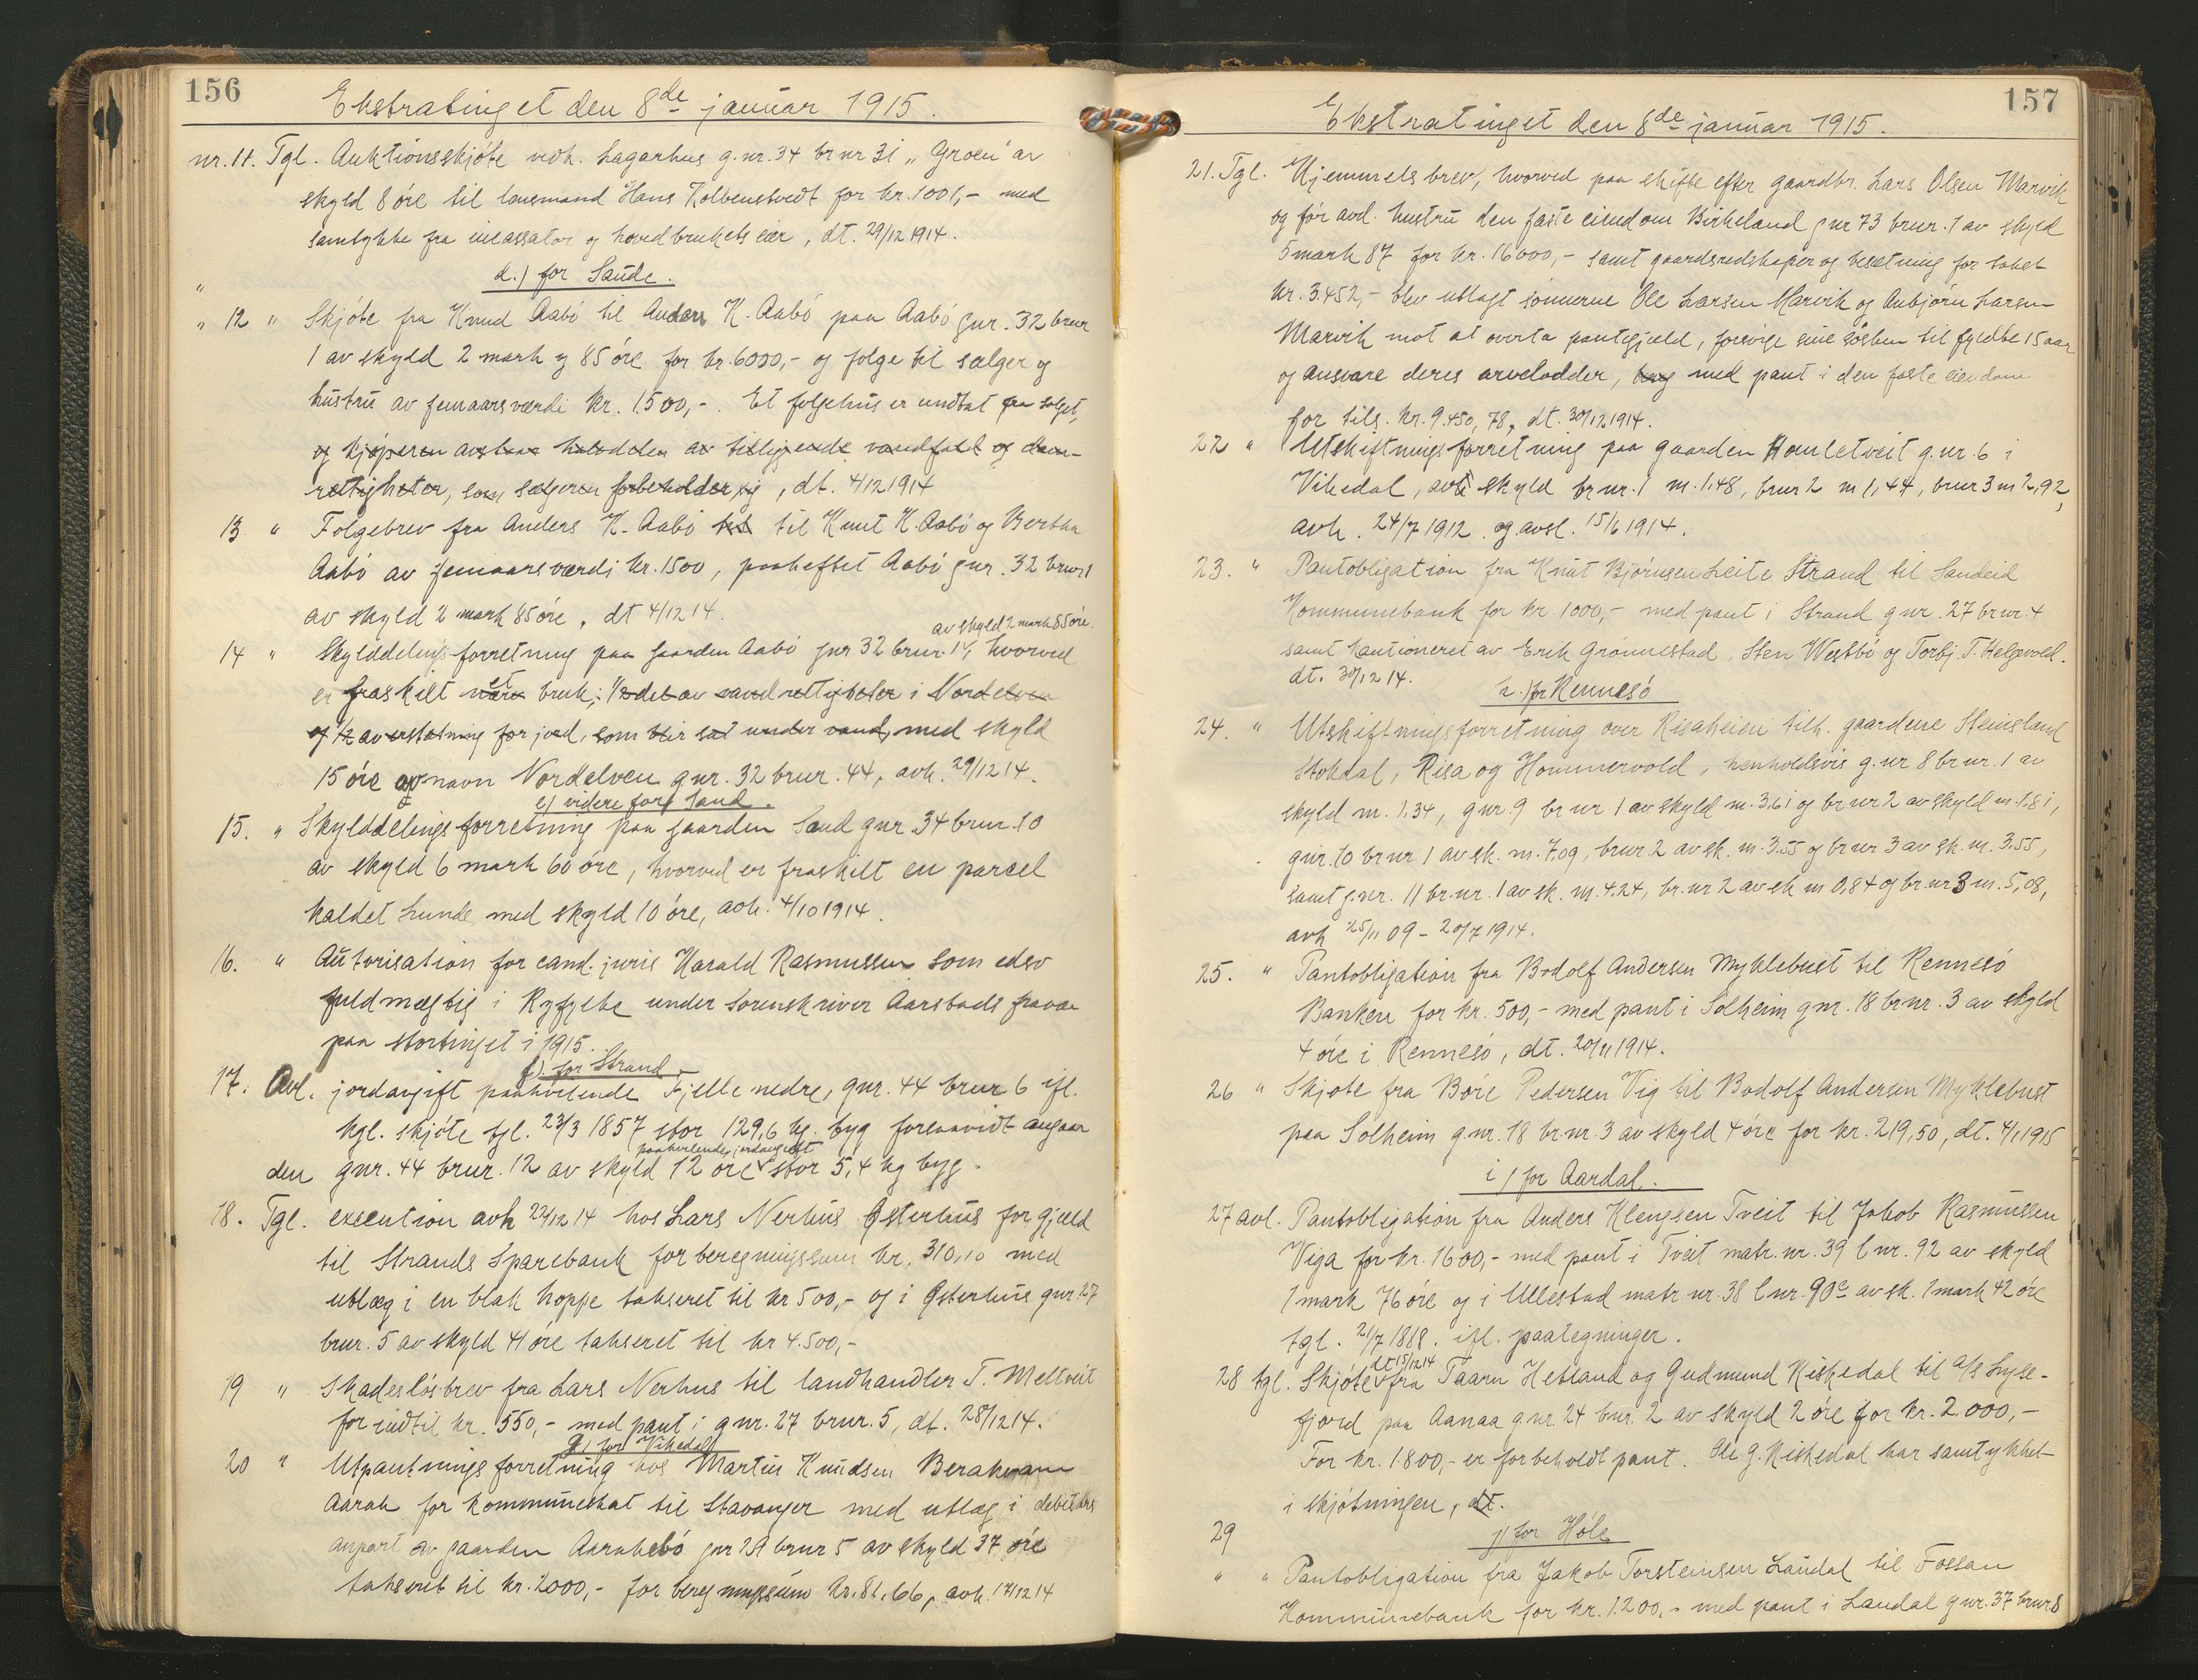 156
Ekstratinget den 8de januar 1915.
nr. 11. Tgl. Auktionsskjöte vedk. Lagarhus g.nr. 34 br nr 31 „Groen" av
skyld 8 öre til lensmand Hans Kolbenstvedt for kr. 1001,- med
samtykke fra incassator og hovedbrukets eier, dt. 29/12 1914.
d.) for Saude.
„
„ 12 „ Skjöte fra Knud Aabö til Anders K. Aabö paa Aabö gnr. 32 brnr
1 av skyld 2 mark og 85 öre for kr. 6000,- og følge til sælger og
hustru av femaarsværdi kr. 1500,-. Et følgehus er undtat fra salget,
og kjøperen avstaar halvdelen av tilliggende vandfald og dam-
rettigheter, som sælgeren forbeholder sig, dt. 4/12 1914
13 „ Følgebrev fra Anders K. Aabö til til Knut K. Aabö og Bertha
Aabö av femaarsværdi kr. 1500, paaheftet Aabö gnr. 32 brnr 1
av skyld 2 mark 85 öre, dt 4/12 14.
av skyld 2 mark 85 öre.
14 „ Skylddelingsforretning paa gaarden Aabö gnr 32 brnr. 1, hvorved
er fraskilt et bruk; 1/2 del av vandrettigheter i Nordelven
og 1/2 av erstatning for jord, som blir sat under vand, med skyld
15 öre og navn Nordelven gnr. 32 brnr. 44, avh. 29/12 14.
e) videre for Sand.
15. „ Skylddelingsforretning paa gaarden Sand gnr 34 brnr. 10
av skyld 6 mark 60 öre, hvorved er fraskilt en parcel
kaldet Lunde med skyld 10 öre, avh. 4/10 1914.
16. „ Autorisation for cand. juris Harald Rasmussen som edsv
fuldmægtig i Ryfylke under Sorenskriver Aarstads fravær
paa stortinget i 1915.
f) for Strand.
17. Avl. jordavgift paahvilende Fjelle nedre, gnr. 44 brnr 6 ifl.
kgl. skjöte tgl. 23/3 1857 stor 129,6 kg. byg forsaavidt angaar
paahvilende jordavgift
den gnr. 44 brnr. 12 av skyld 12 öre stor 5,4 kg byg.
18. Tgl. execution avh 22/12 14 hos Lars Nerhus Østerhus for gjæld
til Strands Sparebank for beregningssum kr. 310,10 med
utlæg i en blak hoppe takseret til kr 500,- og i Østerhus gnr 27
brnr. 5 av skyld 41 öre takseret til kr 4.500,-
19 „ Skadeslösbrev fra Lars Nerhus til landhandler T. Meltveit
for indtil kr. 550,- med pant i gnr. 27 brnr. 5, dt. 28/12 14.
g) for Vikedal
20 „ Utpantningsforretning hos Martin Knudsen Berakvam
Aarak for kommuneskat til Stavanger med utlæg i debitors
anpart av gaarden Aarakebö gnr 29 brnr 5 av skyld 37 öre
takseret til kr. 2000,- for beregningssum kr. 81,66, avh. 12/12 14
157
Ekstratinget den 8de januar 1915.
21. Tgl. Hjemmelsbrev, hvorved paa skifte efter gaardbr. Lars Olsen Marvik
og før avd. hustru den faste eiendom Birkeland gnr 73 brnr. 1 av skyld
5 mark 87 for kr. 16000,- samt gaardsredskaper og besætning for takst
kr. 3.452,- blev utlagt sönnerne Ole Larsen Marvik og Anbjörn Larsen
Marvik mot at overta pantegjæld, forsörge sine sösken til fyldte 15 aar
og ansvare deres arvelodder, med pant i den faste eiendom
for tils. kr. 9.450,78, dt. 30/12 1914.
22 „ Utskiftningsforretning paa gaarden Homletveit g.nr. 6 i
Vikedal, skyld br nr. 1 m. 1,48, brnr 2 m 1,44, brnr 3 m 2,92,
avh. 24/7 1912. og avsl. 15/6 1914.
23. „ Pantobligation fra Knut Björnsen Leite Strand til Sandeid
Kommunebank for kr. 1000,- med pant i Strand gnr. 27 brnr. 4
samt kautioneret av Erik Grönnestad, Sten Westbö og Torbj. T. Helgevold.
dt. 30/12 14.
h.) for Rennesö
24. „ Utskiftningsforretning over Risaheien tilh. gaardene Steinsland
Stokdal, Risa og Hommervold, henholdsvis g.nr 8 br nr. 1 av
skyld m. 1,34, gnr. 9 br nr 1 av skyld m. 3.61 og br nr 2 av skyld m. 1.81,
gnr. 10 br nr 1 av sk. m. 7.09, brnr. 2 av sk. m. 3.55 og br nr 3 av sk. m. 3.55,
samt g.nr. 11 br.nr. 1 av sk. m. 4.24, br. nr 2 av sk m 0,84 og br nr 3 m. 5,08,
avh 25/11 09 - 20/7 1914.
25. „ Pantobligation fra Bodolf Andersen Myklebust til Rennesö
Banken for kr. 500,- med pant i Solheim gnr. 18 brnr. 3 av skyld
4 öre i Rennesö, dt. 20/11 1914.
26 „ Skjöte fra Böre Pedersen Vig til Bodolf Andersen Myklebust
paa Solheim gnr. 18 br nr. 3 av skyld 4 öre for kr. 219,50, dt. 4/1 1915
i) for Aardal.
27 avl. Pantobligation fra Anders Klengsen Tveit til Jakob Rasmussen
Viga for kr. 1600,- med pant i Tveit matr. nr. 39 l nr. 92 av skyld
1 mark 76 öre og i Ullestad matr nr. 38 l nr. 90c av sk. 1 mark 42 öre
tgl. 21/7 1818. ifl. paategninger.
dt 15/12 14
28 tgl. Skjöte fra Taarn Hetland og Gudmund Kiskedal til a/s Lyse-
fjord paa Aanaa gnr 24 bnr. 2 av skyld 2 öre for kr. 2.000,-
For kr. 1.800,- er forbeholdt pant. Ole G. Kiskedal har samtykket
i skjötningen, dt.
29
j) for Höle
„ „ Pantobligation fra Jakob Torsteinsen Laudal til Fossan
Kommunebank for kr. 1.200,- med pant i Laudal gnr. 37 brnr 8